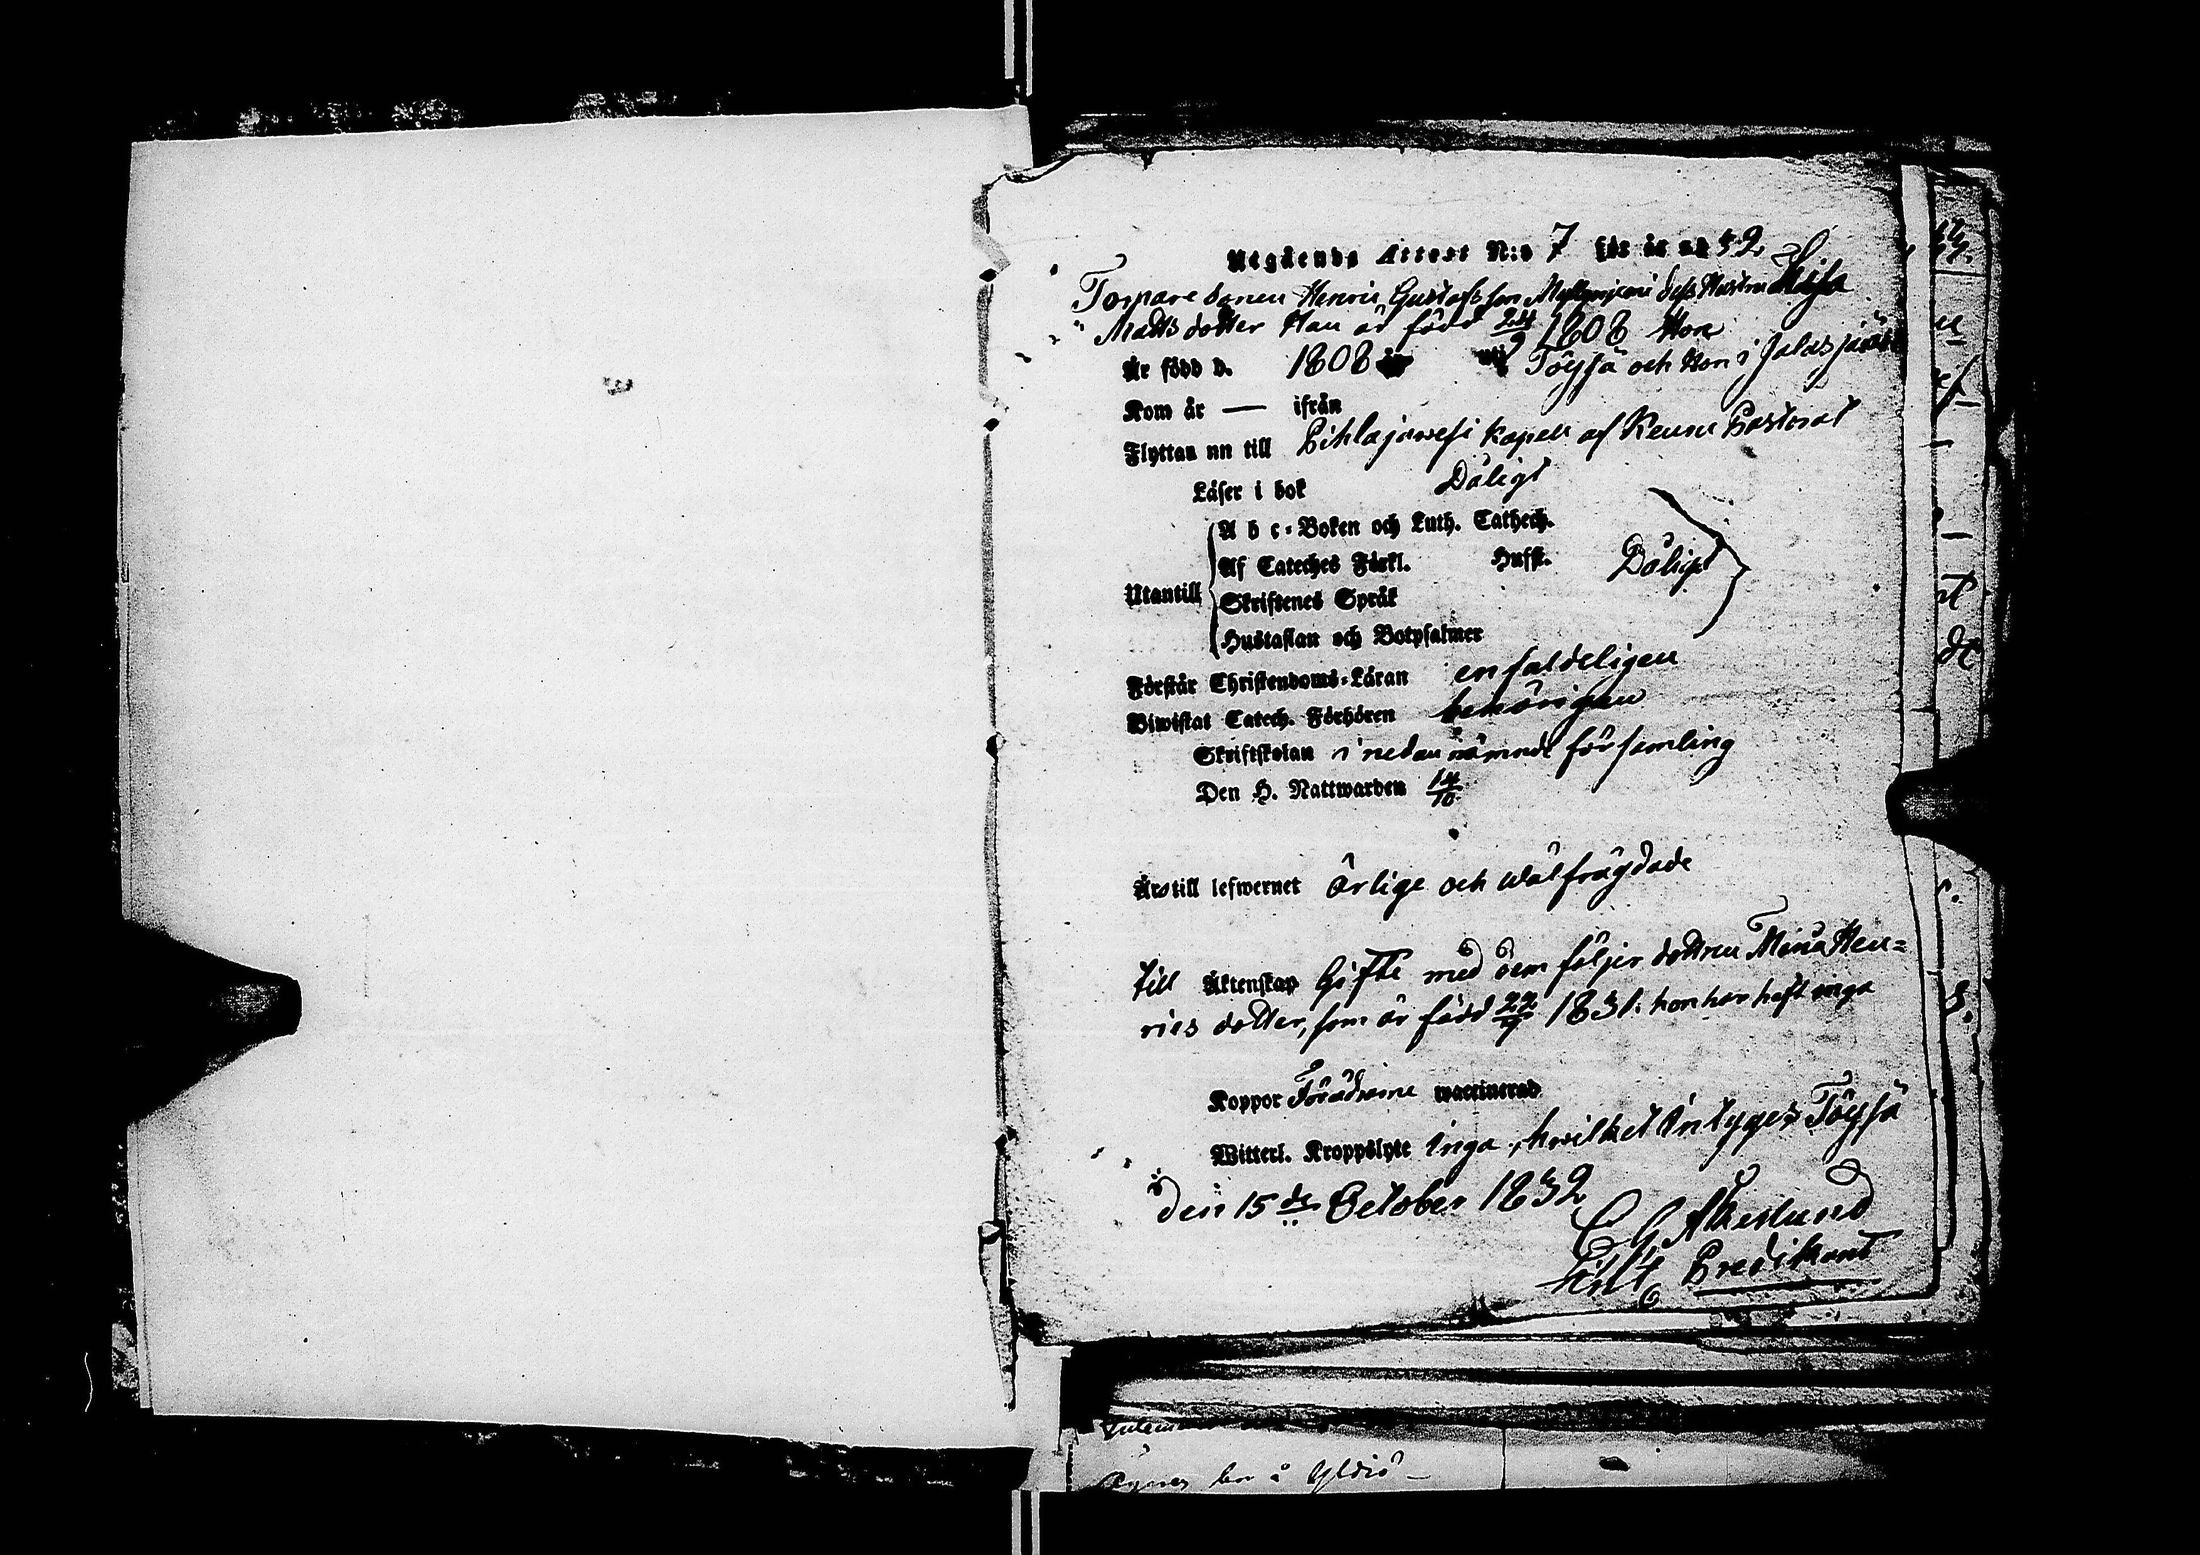 Utgående Attest N:o 7 för år 1832.
Torpare sonen Henric Gustafsson dess Hustru Lisa
Matts dotter Han är född 24/9 1808 Hon
Är född d. 1808 uti Töysä och Hon i Jalasjärvi
Kom år — ifrån
Flyttan nn till Pihlajawesi Kapell af Keuru Pastorat
Läser i bok Dåligt
A b c-Boken och Luth. Cathech.
Af Cateches Förkl. Hufst. Dåligt
Utantill
Skriftenes Språk
Hustaflan och Botpsalmer
Förstår Christendoms-Läran enfaldeligen
Biwistat Catech. Förhören behörigen
Skriftskolan i nedannämnde församling
Den H. Nattwarden 14/10
Äro till lefwernet ärlige och wälfrägdade
till Äktenskap Gifte med dem följer dottren Mina Hen=
rics dotter, som är född 22/9 1831. hon har haft inga
Koppor Föräldrarne waccinerad
Witterl. Kroppslyte inga, hwilket intyges Töysä
den 15de October 1832
C G Åkerlund
Predikant
bor å